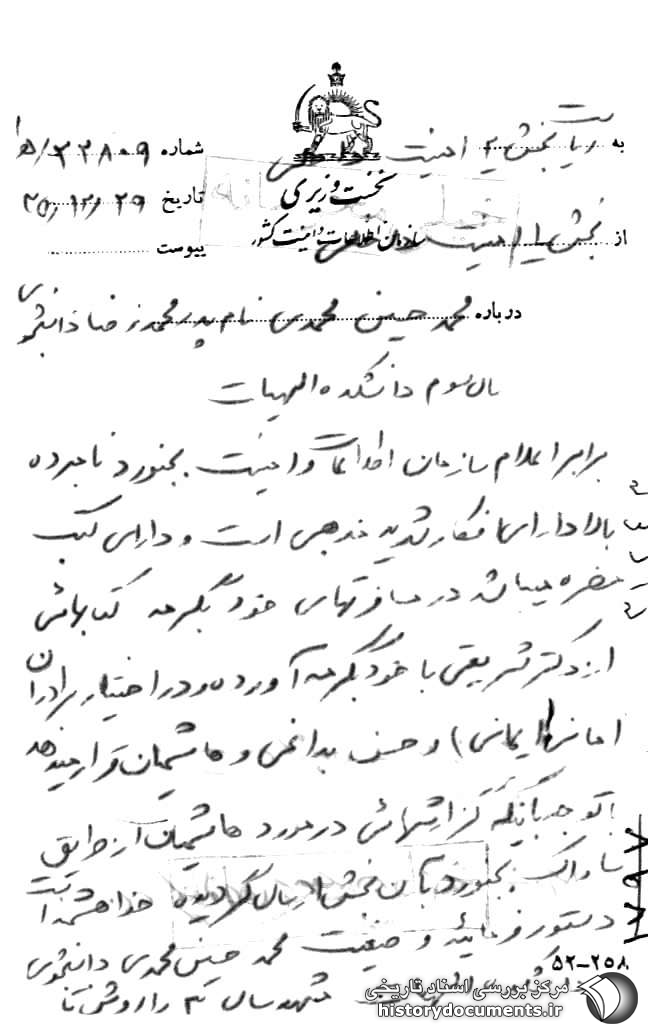 به ریاست بخش ۲ امنیت
شماره ۲۲۸۰۹/ه‍ ۱
نخست وزیری
تاریخ ۳۵/۱۲/۲۹
سازمان اطلاعات و امنیت کشور
از بخش ۱ امنیت
پیوست
درباره محمد حسین محمدی نام پدر محمدرضا دانشجوی
سال سوم دانشکده الهیات
برابر اعلام سازمان اطلاعات و امنیت بجنورد نامبرده
بالا دارای افکار شدید مذهبی است و دارای کتب
مضره میباشد در مسافرتهای خود بگرمه کتابهائی
از دکتر شریعتی با خود بگرمه آورده و در اختیار برادران
امانی (ایمانی) و حسن بداغی و هاشمیان قرار میدهد
با توجه باینکه گزارشهائی در مورد هاشمیان از طریق
ساواک بجنورد بآن بخش ارسال گردیده خواهشمند است
دستور فرمائید وضعیت محمد حسین محمدی دانشجوی
دانشکده الهیات مشهد سال ۳ را روشن تا
۵۲-۲۵۸
مرکز بررسی اسناد تاریخی
historydocuments.ir